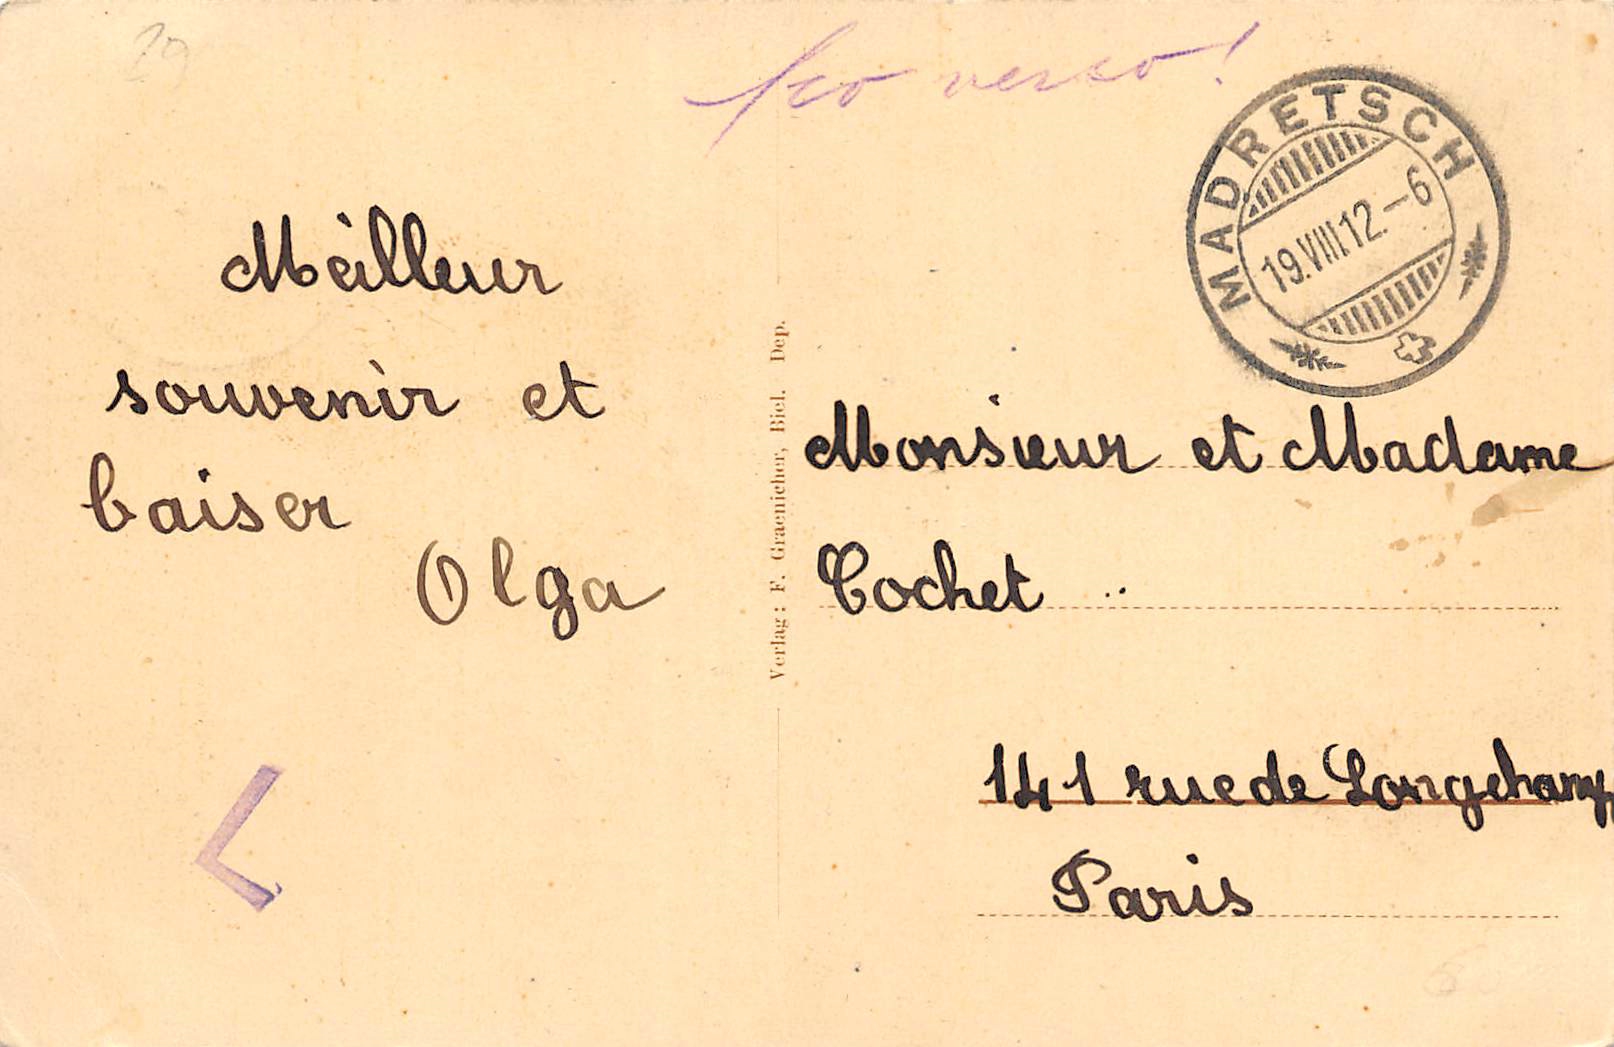 29
verso!
MADRETSCH
19.VIII.12.-6
Meilleur
souvenir et
baiser
Olga
Verlag: F. Graenicher, Biel. Dep.
Monsieur et Madame
Cochet
141 rue de Longchamp
Paris